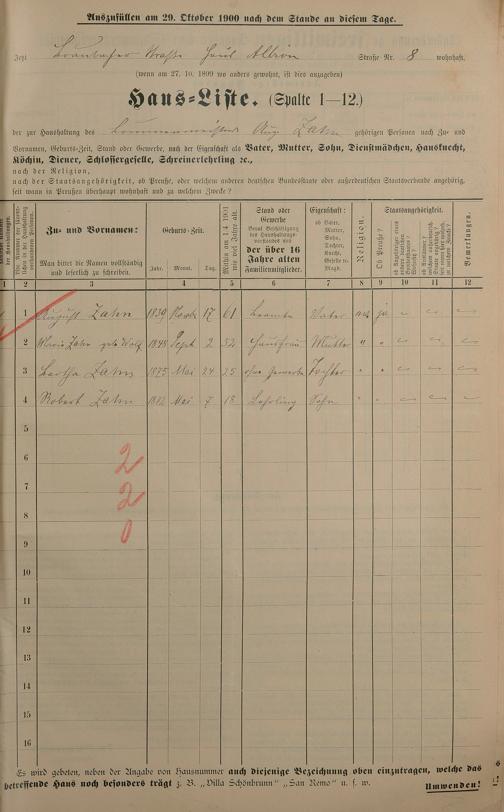 Auszufüllen am 29. Oktober 1900 nach dem Stande an diesem Tage.
Jetzt Straße Haus Albion Straße Nr. 8 wohnhaft,
(wenn am 27. 10. 1899 wo anders gewohnt, ist dies anzugeben)
Haus-Liste. (Spalte 1—12.)
der zur Haushaltung des Aug. Zahn gehörigen Personen nach Zu- und
Vornamen, Geburts-Zeit, Stand oder Gewerbe, nach der Eigenschaft als Vater, Mutter, Sohn, Dienstmädchen, Hausknecht,
Köchin, Diener, Schlossergeselle, Schreinerlehrling ꝛc.,
nach der Religion,
nach der Staatsangehörigkeit, ob Preuße, oder welchem anderen deutschen Bundesstaate oder außerdeutschen Staatsverbande angehörig,
seit wann in Preußen überhaupt wohnhaft und zu welchem Zwecke?
Zu- und Vornamen:
Man bittet die Namen vollständig
und leserlich zu schreiben.
Geburts-Zeit.
Jahr. Monat. Tag.
Stand oder
Gewerbe
der über 16
Jahre alten
Familienmitglieder.
Eigenschaft:
ob Vater,
Mutter,
Sohn,
Tochter,
Knecht,
Geselle ꝛc.
Magd.
Religion.
Staatsangehörigkeit.
Ob Preuße?
Bemerkungen.
1 2 3 4 5 6 7 8 9 10 11 12
1 August Zahn 1839 17 61 Beamter Vater ja
2 Maria Zahn geb. Wolf 1848 Sept 2 52 Hausfrau Mutter " "
3 Bertha Zahn 1875 Mai 24 25 ohne Gewerbe Tochter " "
4 Robert Zahn 1882 Mai 7 18 Lehrling Sohn " "
5
6 2
7 2
8 0
9
10
11
12
13
14
15
16
Es wird gebeten, neben der Angabe von Hausnummer auch diejenige Bezeichnung oben einzutragen, welche das
betreffende Haus noch besonders trägt z. B. „Villa Schönbrunn" „San Remo" u. s. w.
Umwenden!